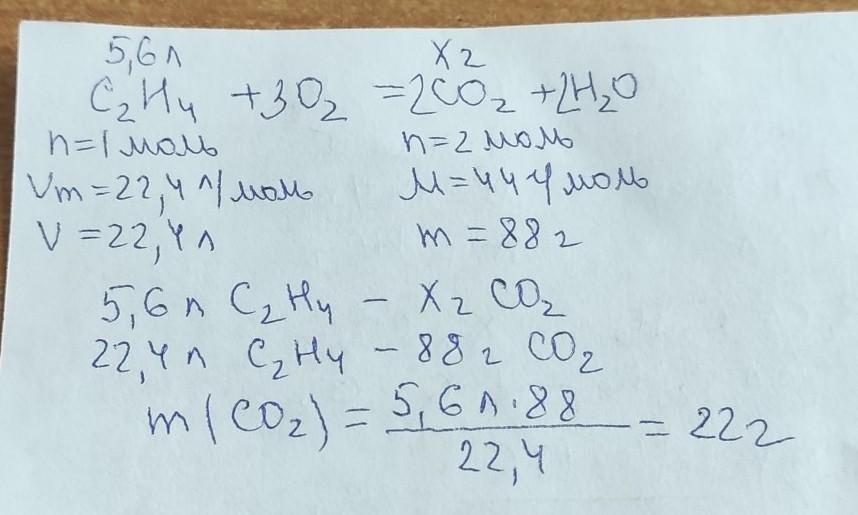 5,6л x г
C₂H₄ +3O₂ =2CO₂ +2H₂O
n=1 моль n=2 моль
Vm=22,4 л/моль M=44 г/моль
V=22,4 л m=88 г
5,6 л C₂H₄ – x г CO₂
22,4 л C₂H₄ – 88 г CO₂
m(CO₂) = 5,6 л·88 / 22,4 = 22 г